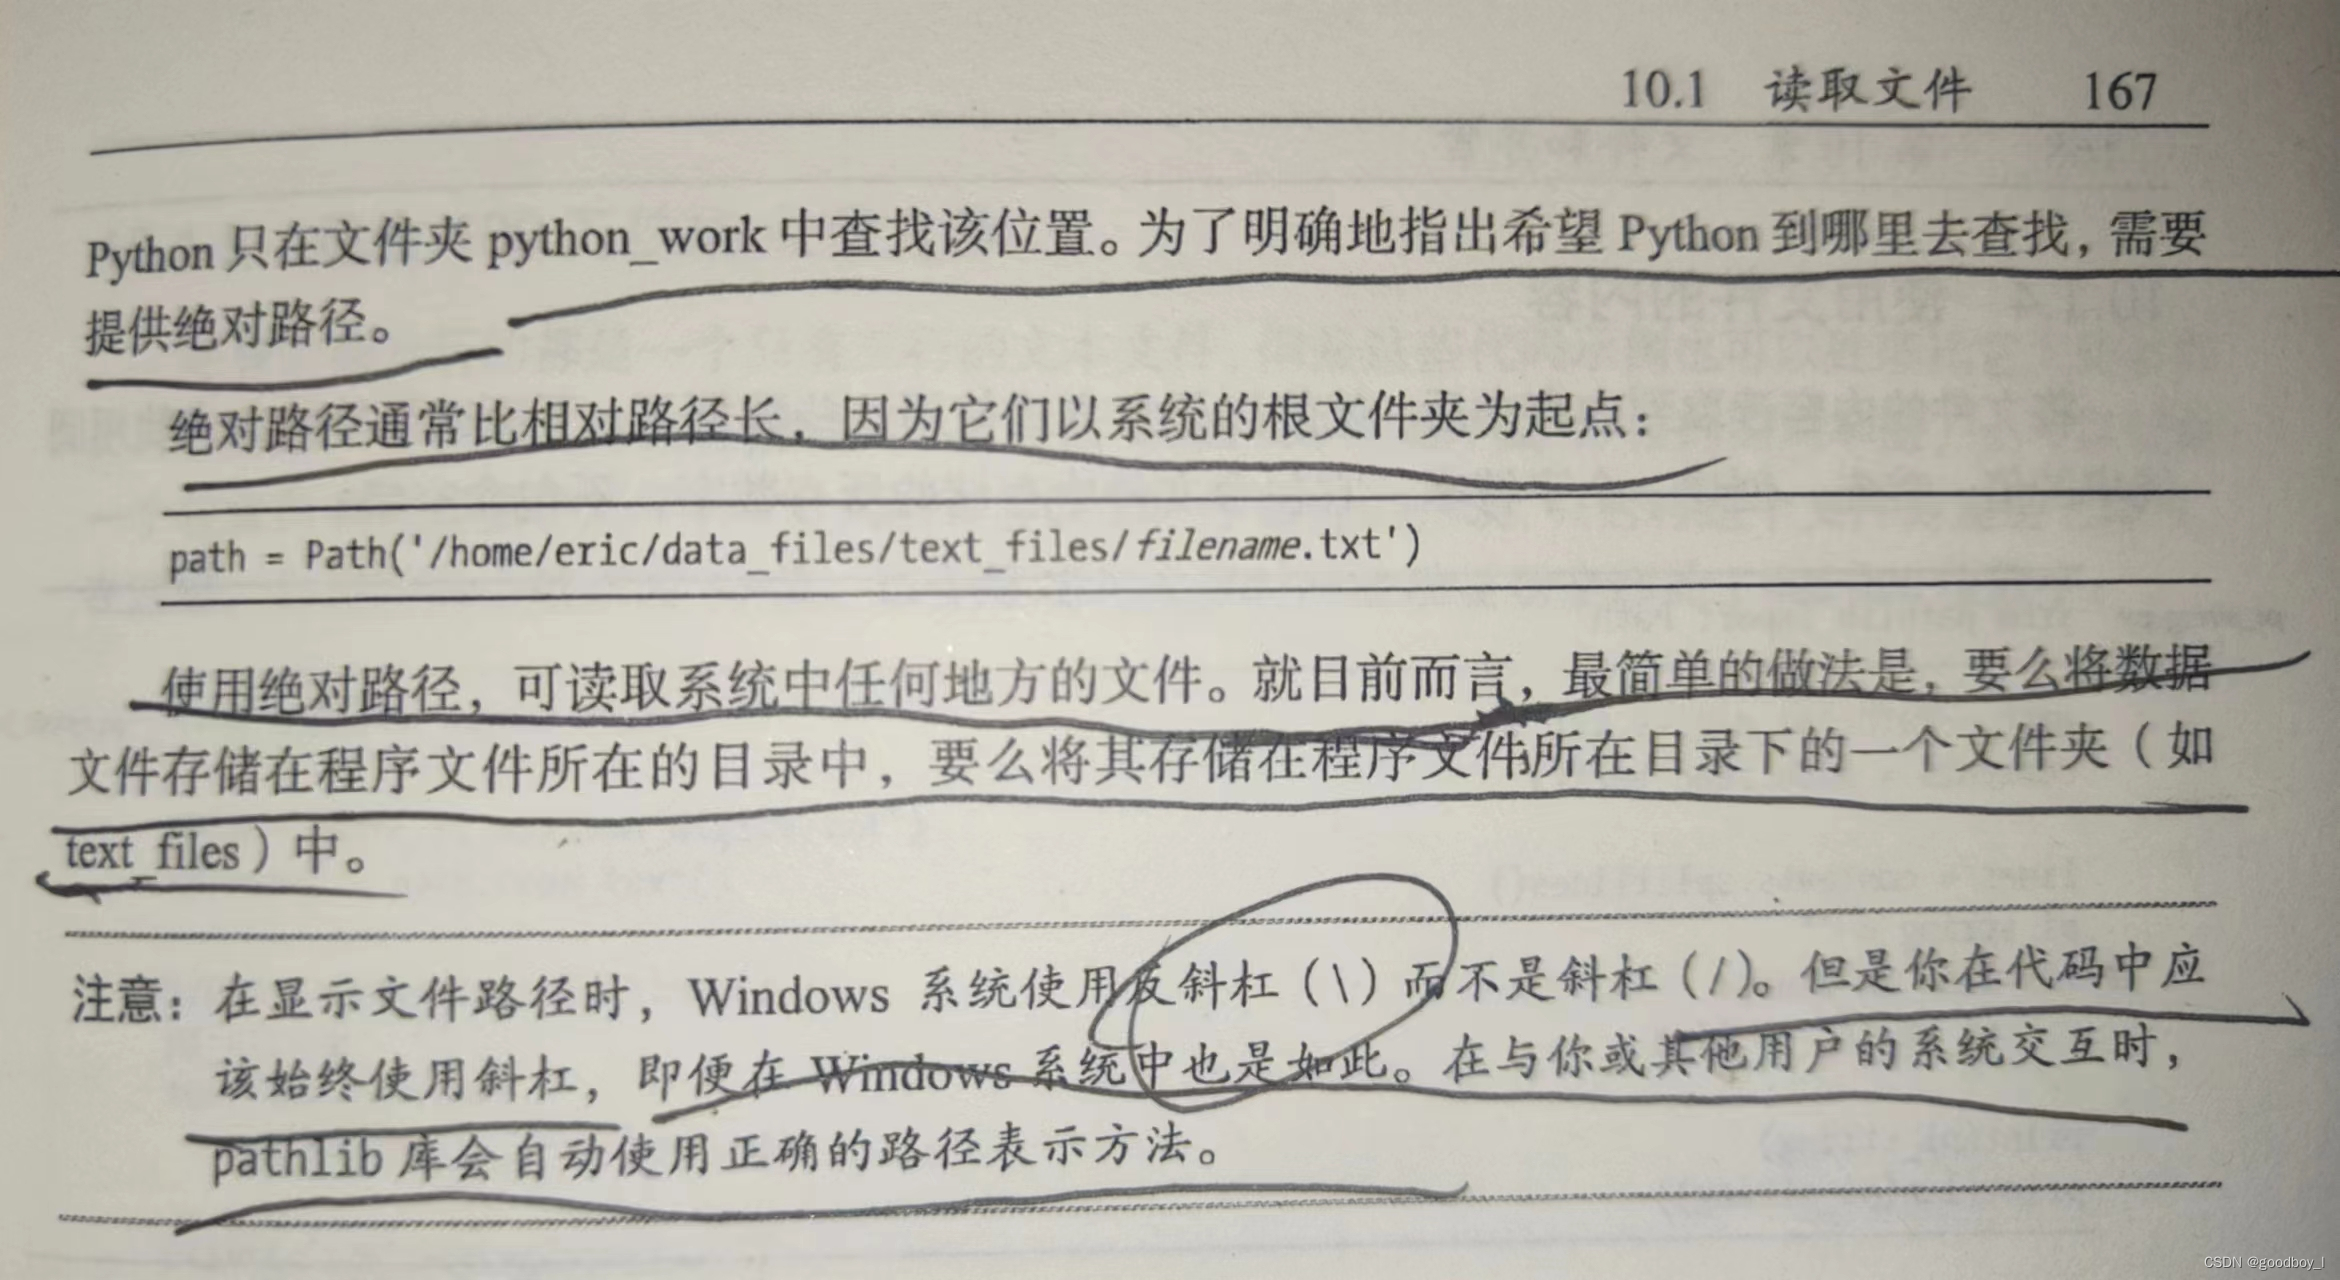 10.1 读取文件 167
Python 只在文件夹 python_work 中查找该位置。为了明确地指出希望 Python 到哪里去查找，需要
提供绝对路径。
绝对路径通常比相对路径长，因为它们以系统的根文件夹为起点：
path = Path('/home/eric/data_files/text_files/filename.txt')
使用绝对路径，可读取系统中任何地方的文件。就目前而言，最简单的做法是，要么将数据
文件存储在程序文件所在的目录中，要么将其存储在程序文件所在目录下的一个文件夹（如
text_files）中。
注意：在显示文件路径时，Windows 系统使用反斜杠（\）而不是斜杠（/）。但是你在代码中应
该始终使用斜杠，即便在 Windows 系统中也是如此。在与你或其他用户的系统交互时，
pathlib 库会自动使用正确的路径表示方法。
CSDN @goodboy_l